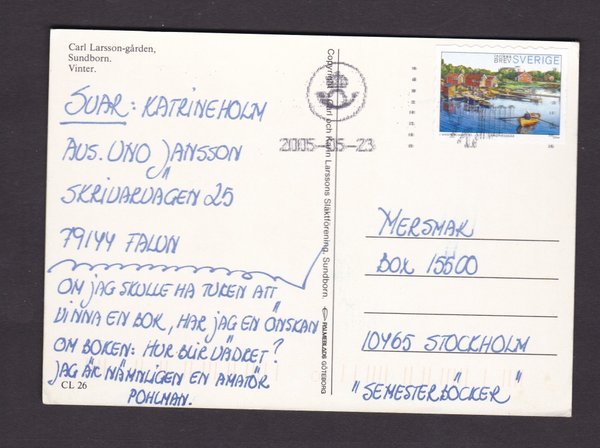 Carl Larsson-gården,
Sundborn.
Vinter.
SVAR: KATRINEHOLM
AVS. UNO JANSSON
SKRIVARVÄGEN 25
79144 FALUN
OM JAG SKULLE HA TUREN ATT
VINNA EN BOK, HAR JAG EN ÖNSKAN
OM BOKEN: HUR BLIR VÄDRET?
JAG ÄR NÄMNLIGEN EN AMATÖR
POHLMAN.
CL 26
Copyright: Carl och Karin Larssons Släktförening, Sundborn.
PALMEBLADS GÖTEBORG
2005-05-23
BREV SVERIGE
MERSMAK
BOX 15500
10465 STOCKHOLM
"SEMESTERBÖCKER"